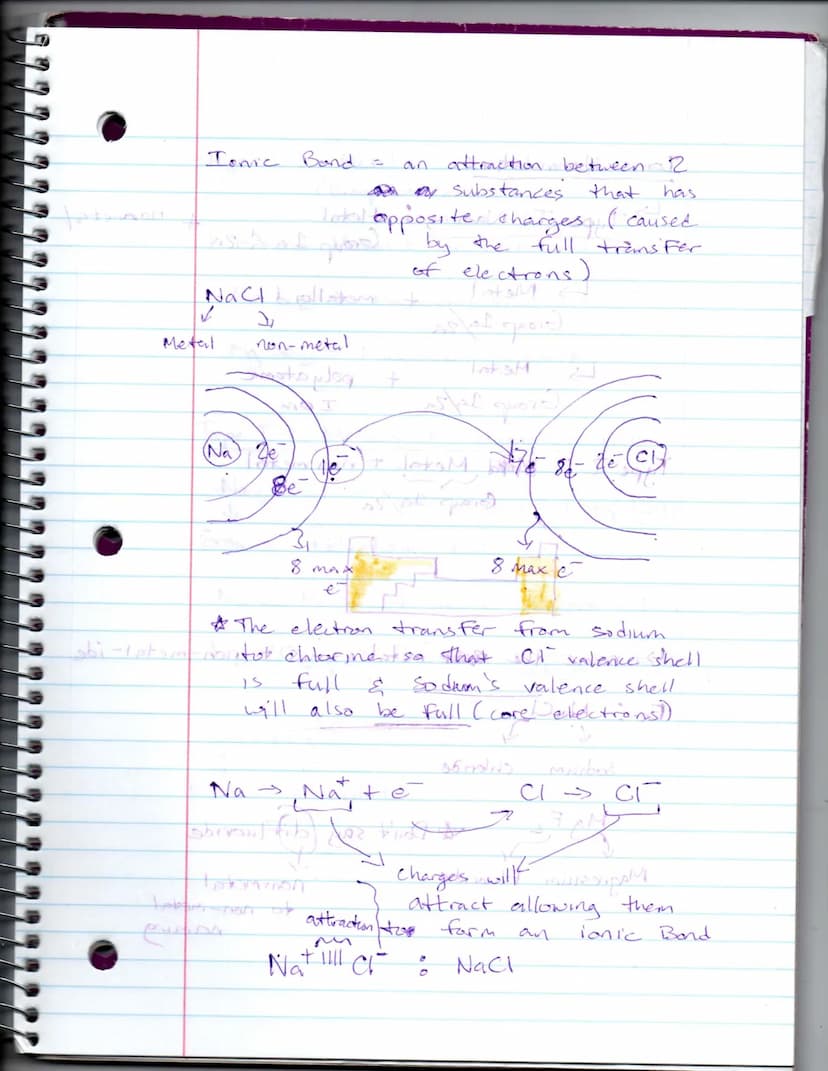 Ionic Bond = an attraction between 2
substances that has
opposite charges (caused
by the full transfer
of electrons)
NaCl
Metal non-metal
Na 2e⁻ 8e⁻ 1e⁻ 7e⁻ 8e⁻ 2e⁻ Cl
8 max e⁻ 8 max e⁻
* The electron transfer from sodium
to chlorine so that Cl⁻ valence shell
is full & sodium's valence shell
will also be full (core electrons)
Na → Na⁺ + e⁻ Cl → Cl⁻
charges will
attract allowing them
attraction to form an ionic Bond
Na⁺ |||| Cl⁻ : NaCl